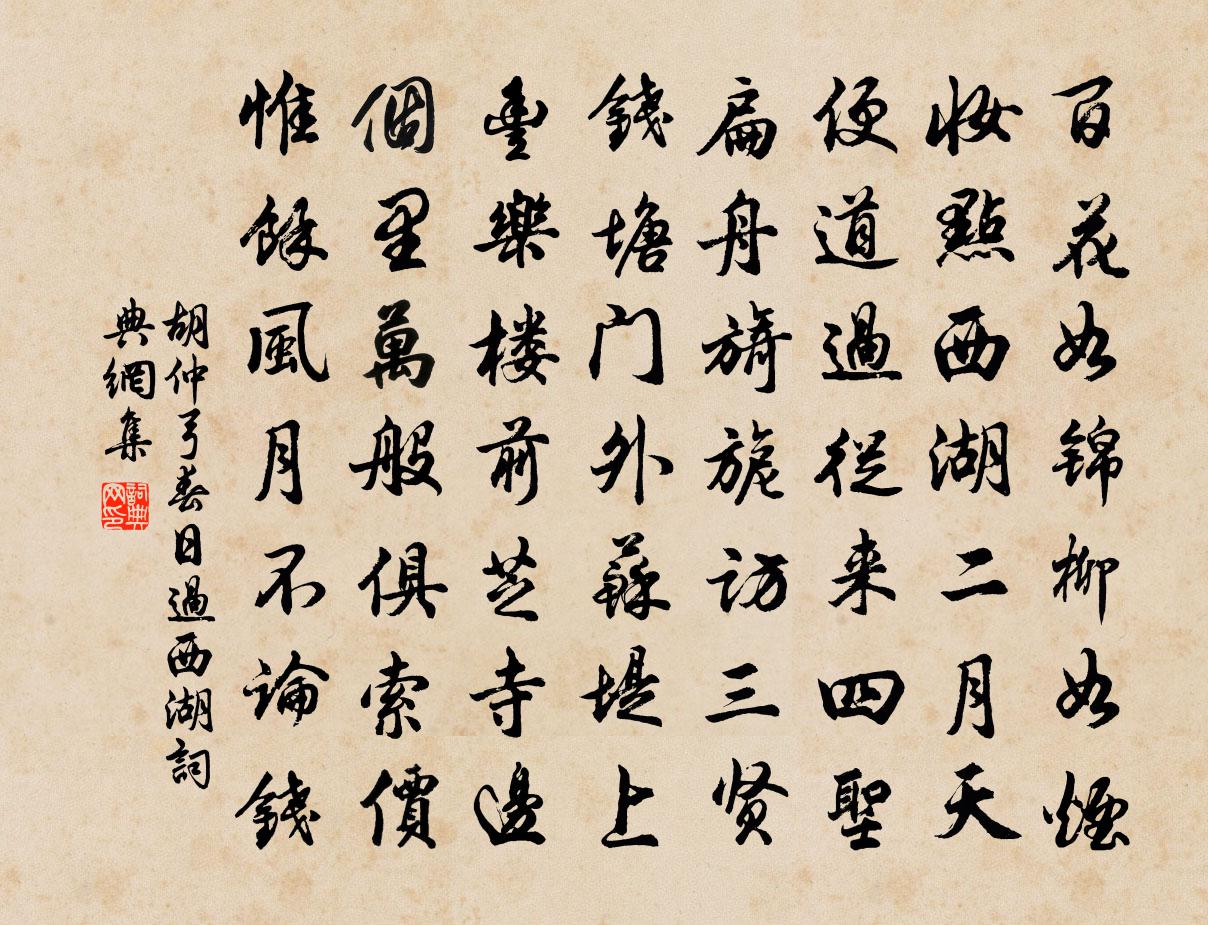 百花如锦柳如煙
妝點西湖二月天
便道過從来四聖
扁舟旖旎访三贤
錢塘门外蘇堤上
豐樂楼前芝寺邊
個里萬般俱索價
惟餘風月不論錢
胡仲弓春日過西湖詞
典網集
詞典网印